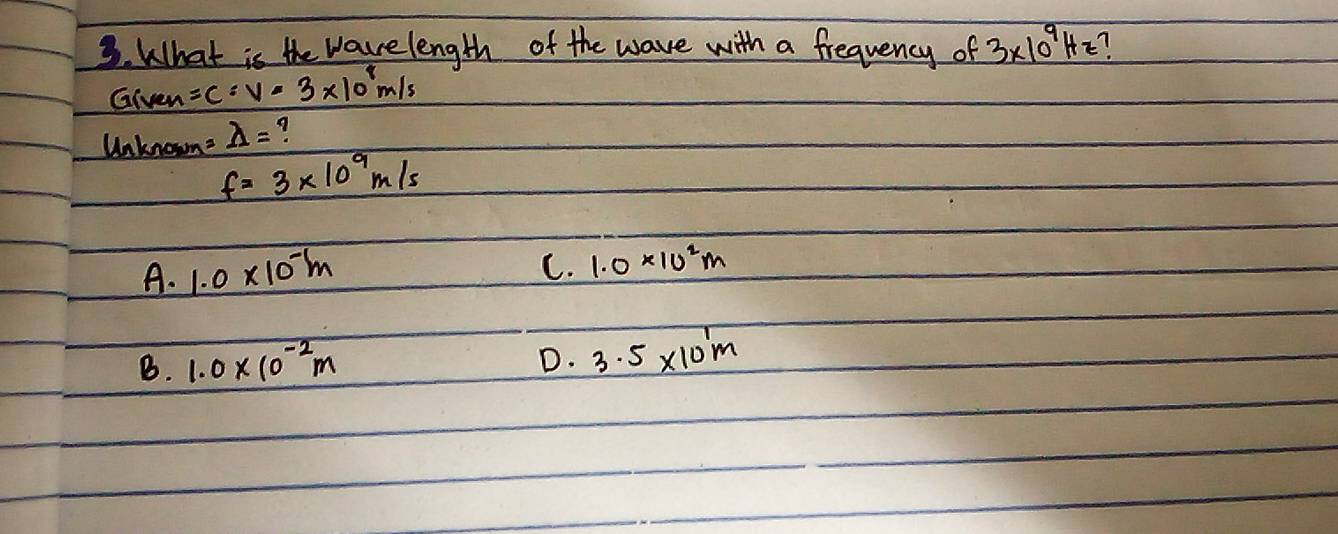 3. What is the wavelength of the wave with a frequency of 3x10⁹Hz?
Given = C = V = 3 x 10⁸ m/s
Unknown = λ = ?
f = 3 x 10⁹ m/s
A. 1.0 x 10⁻¹m C. 1.0 x 10²m
B. 1.0 x 10⁻²m D. 3.5 x 10¹m